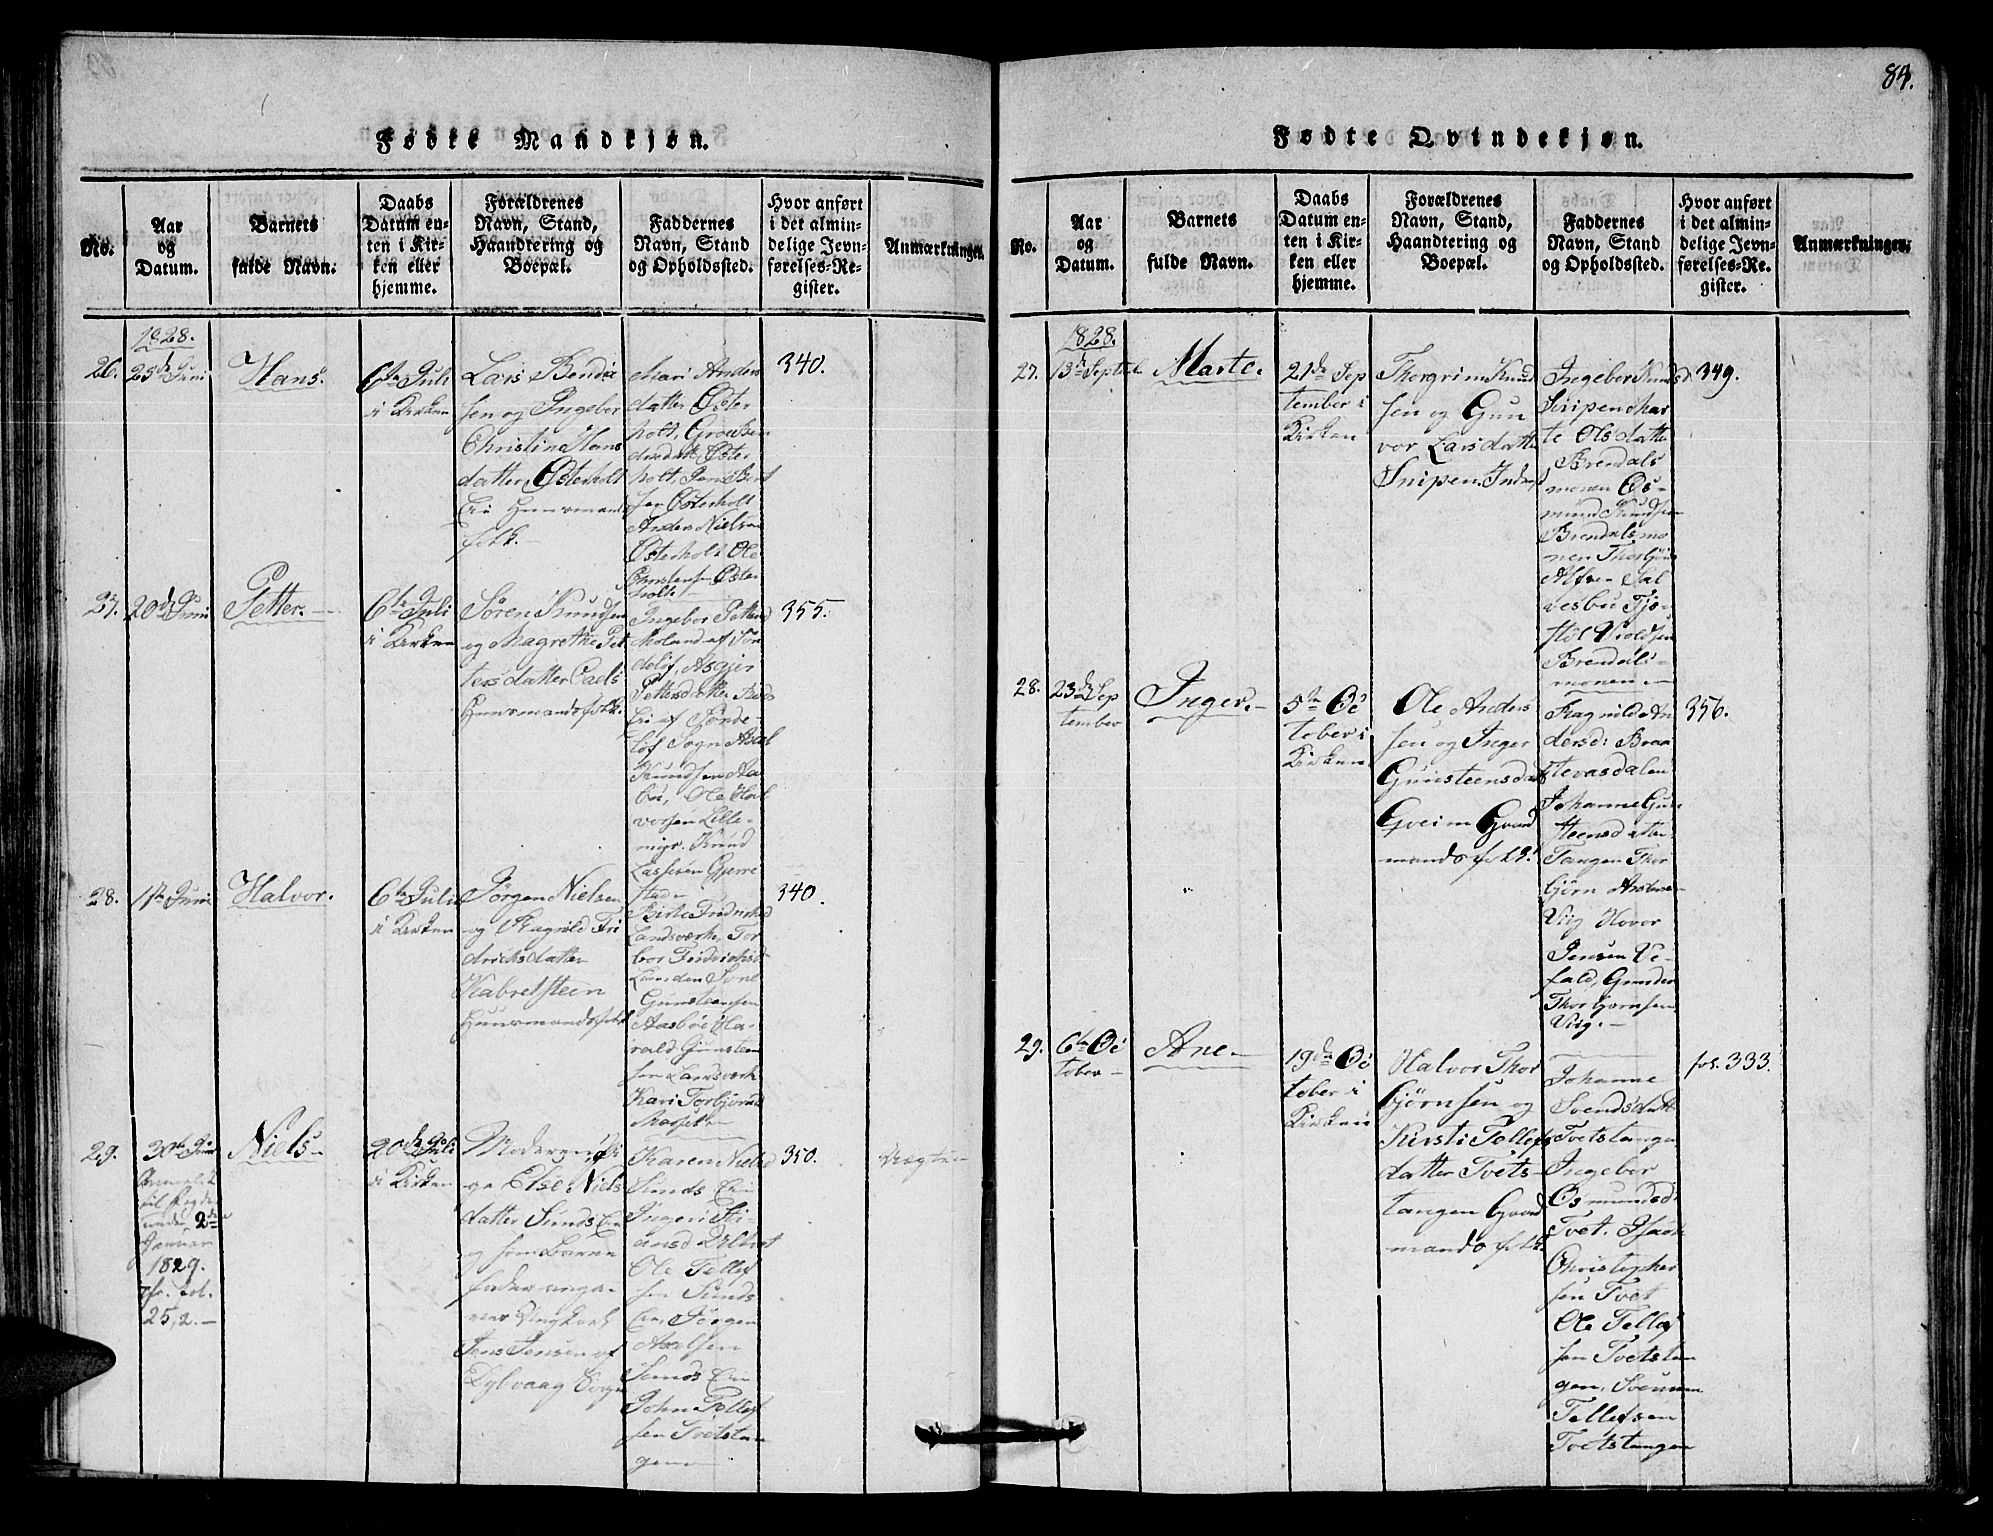 84.
Fødte Mandkjøn.
No.
Aar
og
Datum.
Barnets
fulde Navn.
Daabs
Datum en-
ten i Kir-
ken eller
hjemme.
Forældrenes
Navn, Stand,
Haandtering og
Boepæl.
Faddernes
Navn, Stand
og Opholdssted.
Hvor anført
i det almin-
delige Jevn-
førelses-Re-
gister.
Anmærkninger.
1828.
26.
25de Juni
Hans.
6te Juli
i Kirken
Lars Bendix
sen og Ingebor
Christin Hans
datter, Østerholt
Eie Huusmands
folk.
Mari Anders
datter Øster
holt,
holt, Jens
sen Østerholt
Anders Nielsen
Østerholt Ole
Christensen Øster
holt
340.
27.
20de Juni
Petter.
6te Juli
i Kirken
Søren Knudsen
og Magrethe Pet
tersdatter
Huusmandsfolk.
Ingebor Petters
af Søn
deløf, Asgjer
Pettersdatter
Eie af Sønde-
løf Sogn
Knudsen Aa
Ole Hal
vorsen Lille-
Knud
Lassesen Gjerre
stad
355.
28.
Juni
Halvor.
6te Juli
i Kirken
Jørgen Nielsen
og Ragnild Fri
drichsdatter
Kabretsteen
Huusmandsfolk
Landsverk, Tor
bor Fridrichsd
Gunsteensen
Aasbøe Ha-
rald Gunsteen
sen Landsverk
Kari Torbjørnsd
340.
29.
30te Juni
Anmeldt
til Fogden
under 2den
Januari
1829.
fol.
25,2.
Niels
20de Juli
i Kirken
Moderen, Pi
ge Else Niels
datter Sunds Eie
og som Barne
fader anga
ves Ungkarl
Jens Jensen af
Dybvaag Sogn
Karen Nielsd
Sunds Eie
Ingeri
Ole Tellef
sen Sunds
Eie, Jørgen
Axelsen
Sunds Eie
John Tellef
sen Tvetstan
gen
350.
Fødte Qvindekjøn.
No.
Aar
og
Datum.
Barnets
fulde Navn.
Daabs
Datum en-
ten i Kir-
ken eller
hjemme.
Forældrenes
Navn, Stand,
Haandtering og
Boepæl.
Faddernes
Navn, Stand
og Opholdssted.
Hvor anført
i det almin-
delige Jevn-
førelses-Re-
gister.
Anmærkninger.
1828.
27.
13de Septbr
Marte.
21de Sep
tember i
Kirken
Thorgrim Knud
sen og Gun
vor Larsdatter
Snipen.
Ingebor Knudsd
Snipen Mar
te Olsdatter
Brendals
monen Os-
mund Knudsen
Brendalsmo
nen Thorbjøn
Sal
vesbu Tjø-
støl
Brendals-
monen
349.
28.
23de Sep
tember
Inger.
5te Oc
tober i
Kirken
Ole Anders
sen og Inger
Gunsteensdat
Gveim Gaard
mandsfolk.
Ragnild An
dersd:
Johanne Gun
steensdatter
Tangen Thor
bjørn
Viig Hovor
Jensen Ve-
fald, Gunder
Thorbjørnsen
Viig.
356.
29.
6te Oc
tober
Ane
19de Oc
tober i
Kirken
Halvor Thor
bjørnsen og
Kirsti Tellefs
datter Tvets-
tangen Gaard
mandsfolk.
Johanne
Svendsdatt
Tvetstangen
Ingebor
Osmundsd.
Tvet. Isaac
Christopher
sen Tvet
Ole Tellef
sen Tvetstan
gen, Svennem
Tellefsen
Tvetstangen
fol. 333.